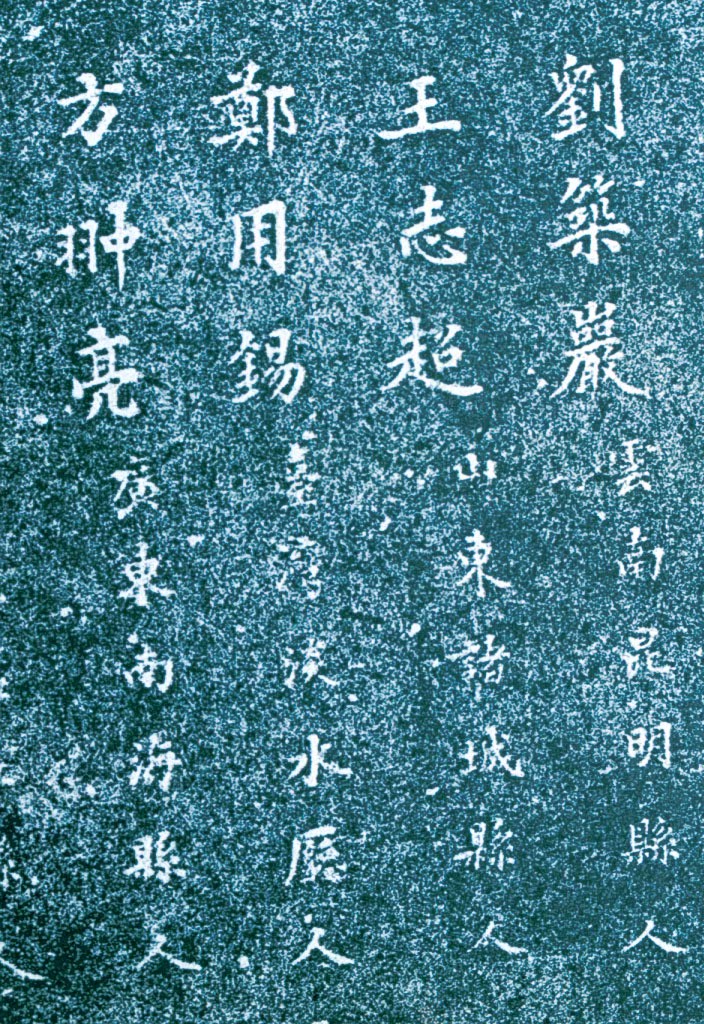 劉築巖雲南昆明縣人
王志超山東諸城縣人
鄭用錫臺灣淡水廳人
方翀亮廣東南海縣人